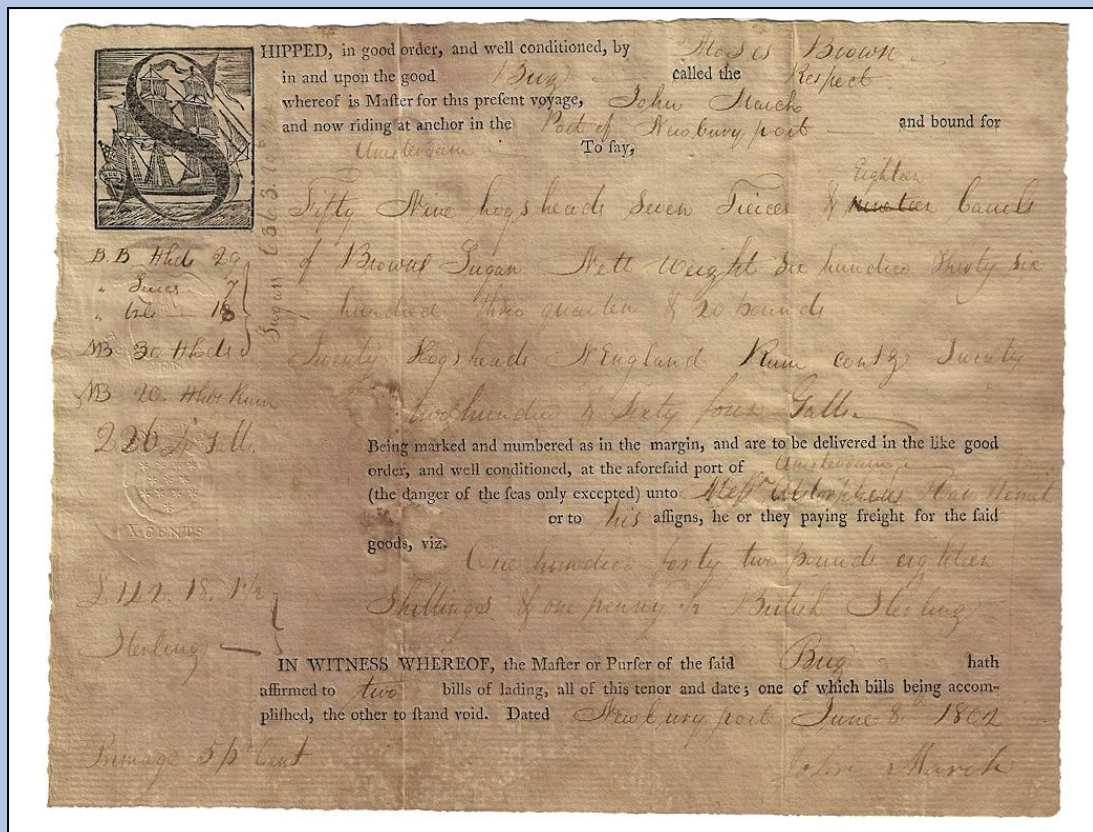 SHIPPED, in good order, and well conditioned, by Moses Brown
in and upon the good Brig called the Respect
whereof is Maſter for this preſent voyage, John March
and now riding at anchor in the Port of Newburyport and bound for
Amsterdam To ſay,
Eighteen
Fifty Nine hogsheads Seven Tierces & nineteen barrels
of Brown Sugar Nett Weight Six hundred thirty six
hundred three quarters & 20 pounds
Twenty Hogsheads NEngland Rum contg Twenty
two hundred & Sixty four Galls
B.B Hhds 29
" Tierces 7
" bbls 18
MB 30 Hhds
Sugar 636.3.20
MB 20. Hhds Rum
2264 Galls.
X CENTS
Being marked and numbered as in the margin, and are to be delivered in the like good
order, and well conditioned, at the aforeſaid port of Amsterdam
(the danger of the ſeas only excepted) unto Meſſrs
or to his aſſigns, he or they paying freight for the ſaid
goods, viz.
One hundred forty two pounds eighteen
Shillings & one penny ½ British Sterling
£142. 18. 1½
Sterling
IN WITNESS WHEREOF, the Maſter or Purſer of the ſaid Brig hath
affirmed to two bills of lading, all of this tenor and date; one of which bills being accom-
pliſhed, the other to ſtand void. Dated Newburyport June 8 1802
Primage 5 pr Cent
John March